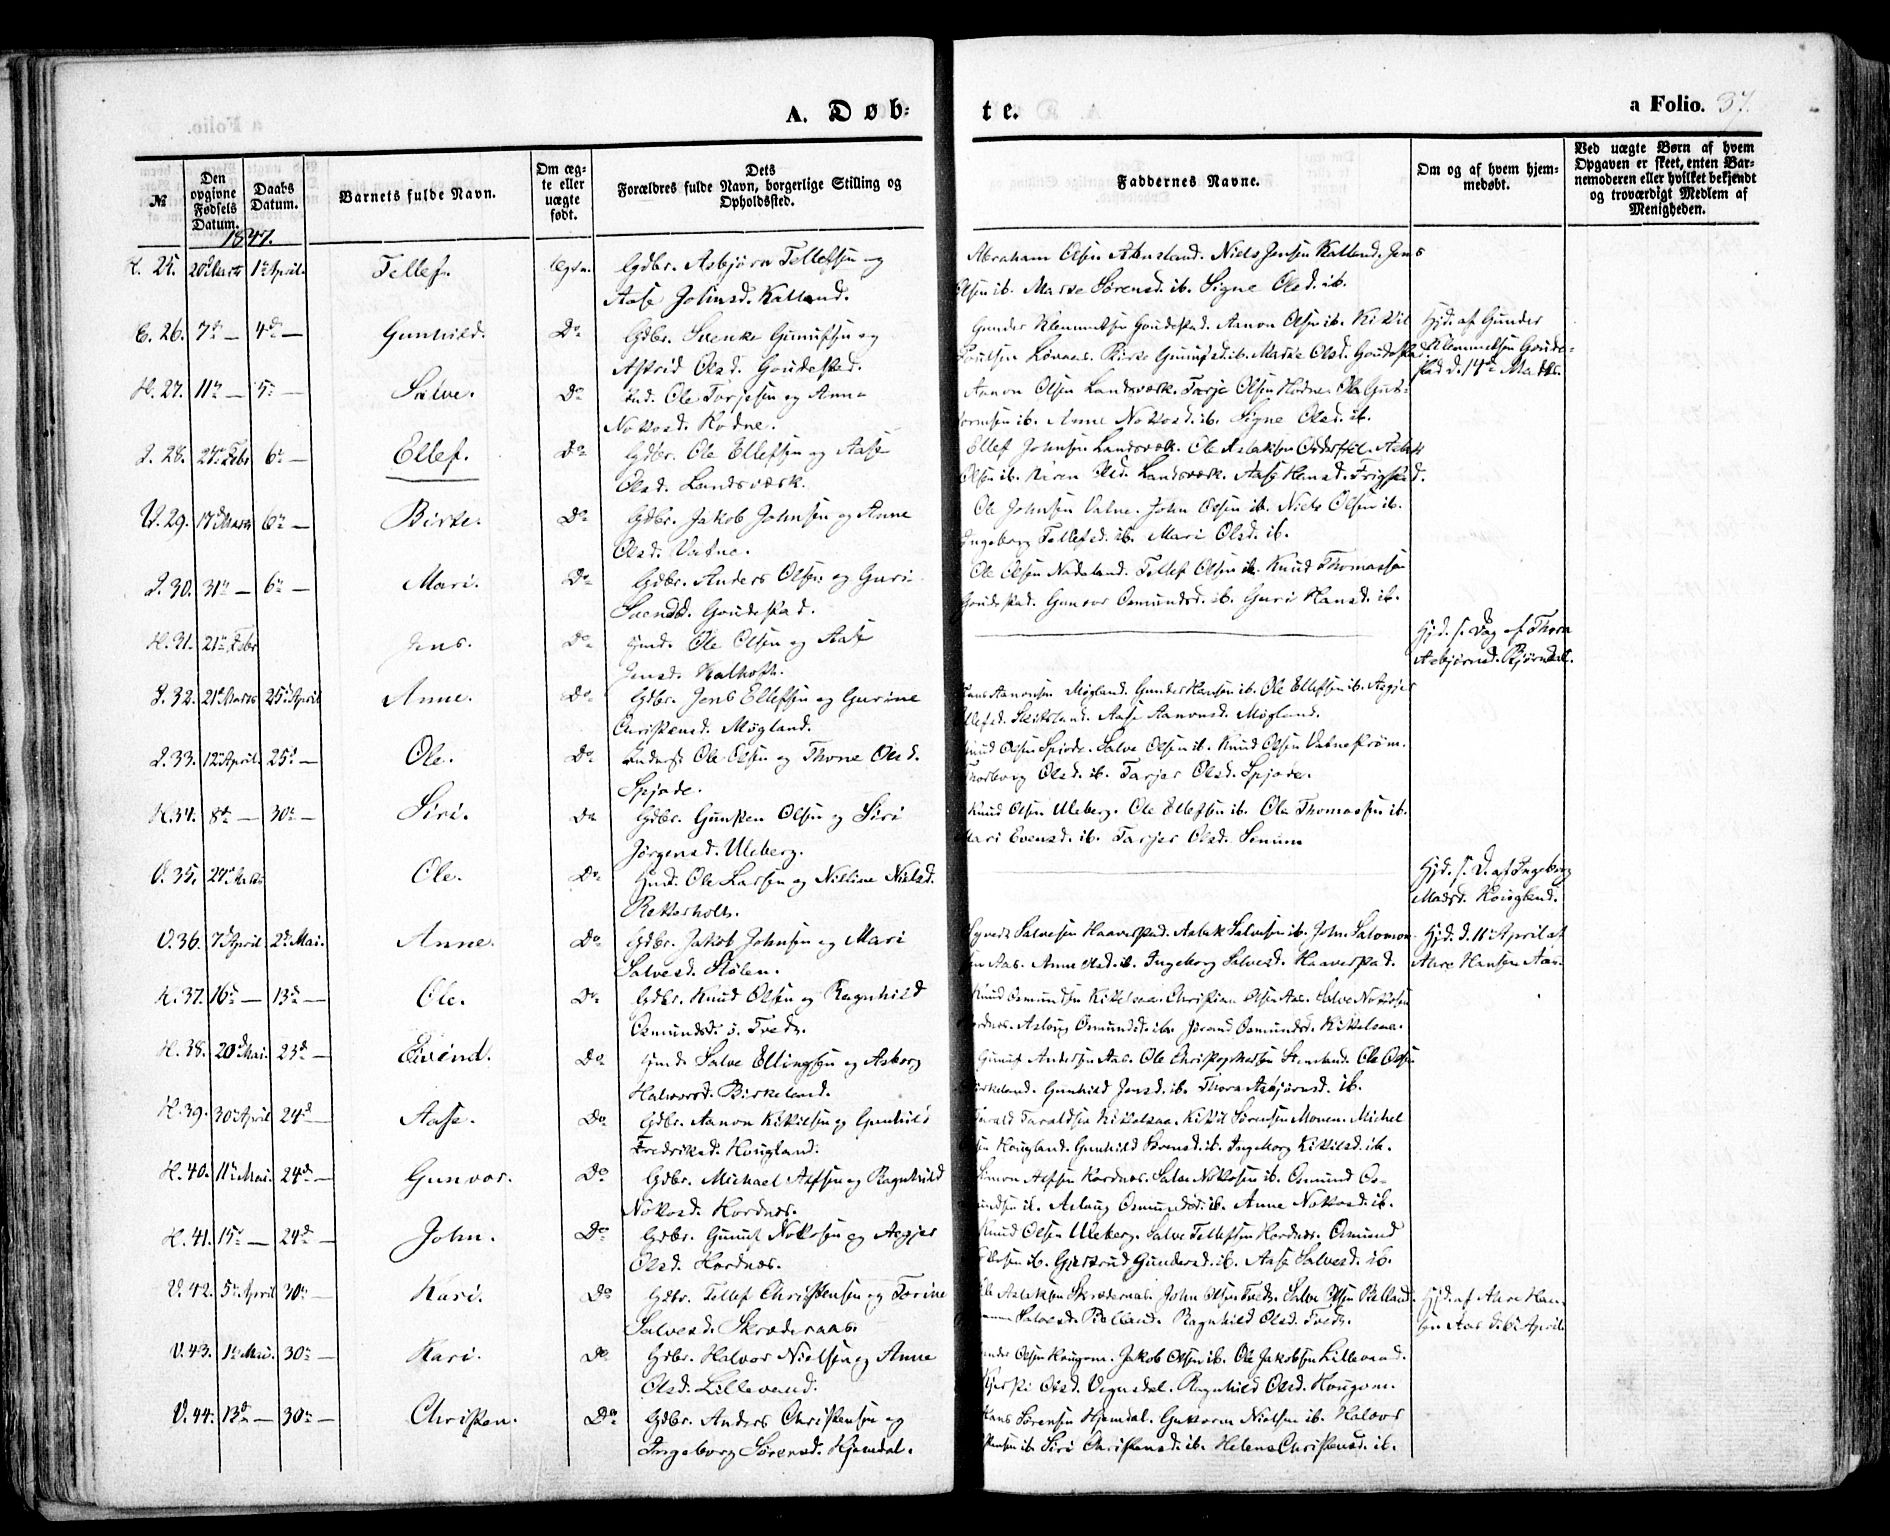 A. Døb-
te.
a Folio. 37.
№
Den opgivne Fødsels Datum.
Daabs Datum.
Barnets fulde Navn.
Om ægte eller uægte født.
Dets Forældres fulde Navn, borgerlige Stilling og Opholdssted.
Faddernes Navne.
Om og af hvem hjemmedøbt.
Ved uægte Børn af hvem Opgaven er skeet, enten Barnemoderen eller hvilket bekjendt og troværdigt Medlem af Menigheden.
1847.
H. 25. 20 Marts 1ste April. Tellef. Ægte. Gdbr. Asbjørn Tellefsen og
Aase Johnsd. Kalland.
Abraham Olsen Niels Jensen Kalland. Jens
Olsen ib. Marte Sørensd. ib. Signe Olsd. ib.
26. 7de — 4de — Gunhild. Do Gdbr. Svenke Gunufsen og
Astrid Olsd. Goudestad.
Gunder Klemmetsen Goudestad. Aanon Olsen ib. Kittil
Birte Gunufsd. ib. Marte Olsd. Goudestad.
Hjd. af Gunder
Klemmetsen Goude-
stad d. 14de Marts.
H. 27. 11te — 5te — Salve. Do Ole Torjesen og Anne
Nottosd. Hodne.
Aanon Olsen Landsværk. Terje Olsen Hodne. Ole Gut-
tormsen ib. Anne Nottosd. ib. Signe Olsd. ib.
28. 27de Febr 6te — Ellef. Do Gdbr. Ole Ellefsen og Aase
Olsd. Landsværk.
Ellef Johnsen Landsværk. Ole Aslaksen
Olsen ib. Karen Olsd. Landsværk. Aase Hansd. Frigstad.
V. 29. 17de Marts 6te — Birte. Do Gdbr. Jakob Johnsen og Anne
Olsd. Vatne.
Ole Johnsen Vatne. John Olsen ib. Niels Olsen ib.
Ingeborg Tellefsd. ib. Mari Olsd. ib.
30. 31te — 6te — Mari. Do Gdbr. Anders Olsen og Guri
Svendsd. Goudestad.
Ole Olsen Nadeland. Tellef Olsen ib. Knud Thomassen
Goudestad. Gunvor Osmundsd. ib. Guri Hansd. ib.
H. 31. 21de Febr Jens. Do Hmd. Ole Olsen og Aase
Jensd. Kalhoft.
Hjd. s. Dag af Thora
Asbjørnsd. Bjørndal.
32. 21de Marts 25de April Anne. Do Gdbr. Jens Ellefsen og Gurine
Christensd. Møgland.
Hans Aanonsen Møgland. Gunder Hansen ib. Ole Ellefsen ib. Asgjer
Ellefsd. Skeibland. Aase Aanonsd. Møgland.
33. 12te April. 25de — Ole. Do Ole Olsen og Thone Olsd.
Spjode.
Knud Olsen Spjode. Salve Olsen ib. Knud Olsen Vatnestrøm.
Thorborg Olsd. ib. Tarjer Olsd. Spjode.
H. 34. 8de — 30te — Siri. Do Gdbr. Gunsten Olsen og Siri
Jørgensd. Uleberg.
Knud Olsen Uleberg. Ole Ellefsen ib. Ole Thomassen ib.
Mari Evensd. ib. Tarjer Olsd. Senum
V. 35. 27de Marts Ole. Do Hmd. Ole Larsen og Nilsine Nielsd.
Retterholt.
Hjd. s. D. af Ingeborg
Madsd. Kougland.
V. 36. 7de April 2den Mai. Anne. Do Gdbr. Jakob Johnsen og Mari
Salvesd. Stølen.
Syvert Salvesen Haaverstad. Aslak Salvesen ib. John Salomon-
sen Aas. Anne Olsd. ib. Ingeborg Salvesd. Haaverstad.
Hjd. d. 11te April af
Atre Hansen Aas.
H. 37. 16de — 13de — Ole. Do Gdbr. Knud Olsen og Ragnhild
Osmundsd. Tvedt.
Knud Osmundsen Kittelsaa. Christian Olsen Aas. Salve Nottosen
Hordnes. Aslaug Osmundsd. ib. Jorand Osmundsd. Kittelsaa.
H. 38. 20de Mai. 23de — Eivend. Do Hmd. Salve Ellingsen og Asborg
Halvorsd. Birkeland.
Gunuf Andersen Aas. Ole Christophersen Ole Olsen
Birkeland. Gunhild Jensd. ib. Thora Asbjørnsd. ib.
H. 39. 30te April 24de — Aase. Do Gdbr. Aanon Kittilsen og Gunhild
Fredriksd. Hougland.
Harald Taraldsen Kittelsaa. Kittil Sørensen Monen. Michel
Hougland. Gunhild Svensd. ib. Ingeborg Kittilsd. ib.
H. 40. 11te Mai. 24de — Gunvor. Do Gdbr. Michael Alfsen og Ragnhild
Nottosd. Hordnes.
Simon Alfsen Hordnes. Salve Nottosen ib. Osmund Os-
mundsen ib. Aslaug Osmundsd. ib. Anne Nottosd. ib.
H. 41. 15de — 24de — John. Do Gdbr. Gunuf Nottosen og Asgjer
Olsd. Hordnes.
Knud Olsen Uleberg. Salve Tellefsen Hordnes. Osmund
Olsen ib. Gjertrud Gundersd. ib. Aase Salvesd. ib.
V. 42. 5te April 30te — Kari. Do Gdbr. Tellef Christensen og Torine
Salvesd. Skrøderaas.
Ole Aslaksen Skrøderaas. John Olsen Tvedt. Salve Olsen Belland.
Salvesd. Belland. Ragnhild Olsd. Tvedt.
Hjd. af Atre Han-
sen Aas d. 6te April
V. 43. 1ste Mai. 30te — Kari. Do Gdbr. Halvor Nielsen og Anne
Olsd. Lillevand.
Anders Olsen Hougom. Jakob Olsen ib. Ole Jakobsen Lillevand.
Kjersti Olsd. Vegusdal. Ragnhild Olsd. Hougom.
V. 44. 13de — 30te — Christen. Do Gdbr. Anders Christensen og
Ingeborg Sørensd. Hjemdal.
Hans Sørensen Hjemdal. Guttorm Nielsen ib. Halvor
Christensen ib. Siri Christensd. ib. Helene Christensd. ib.